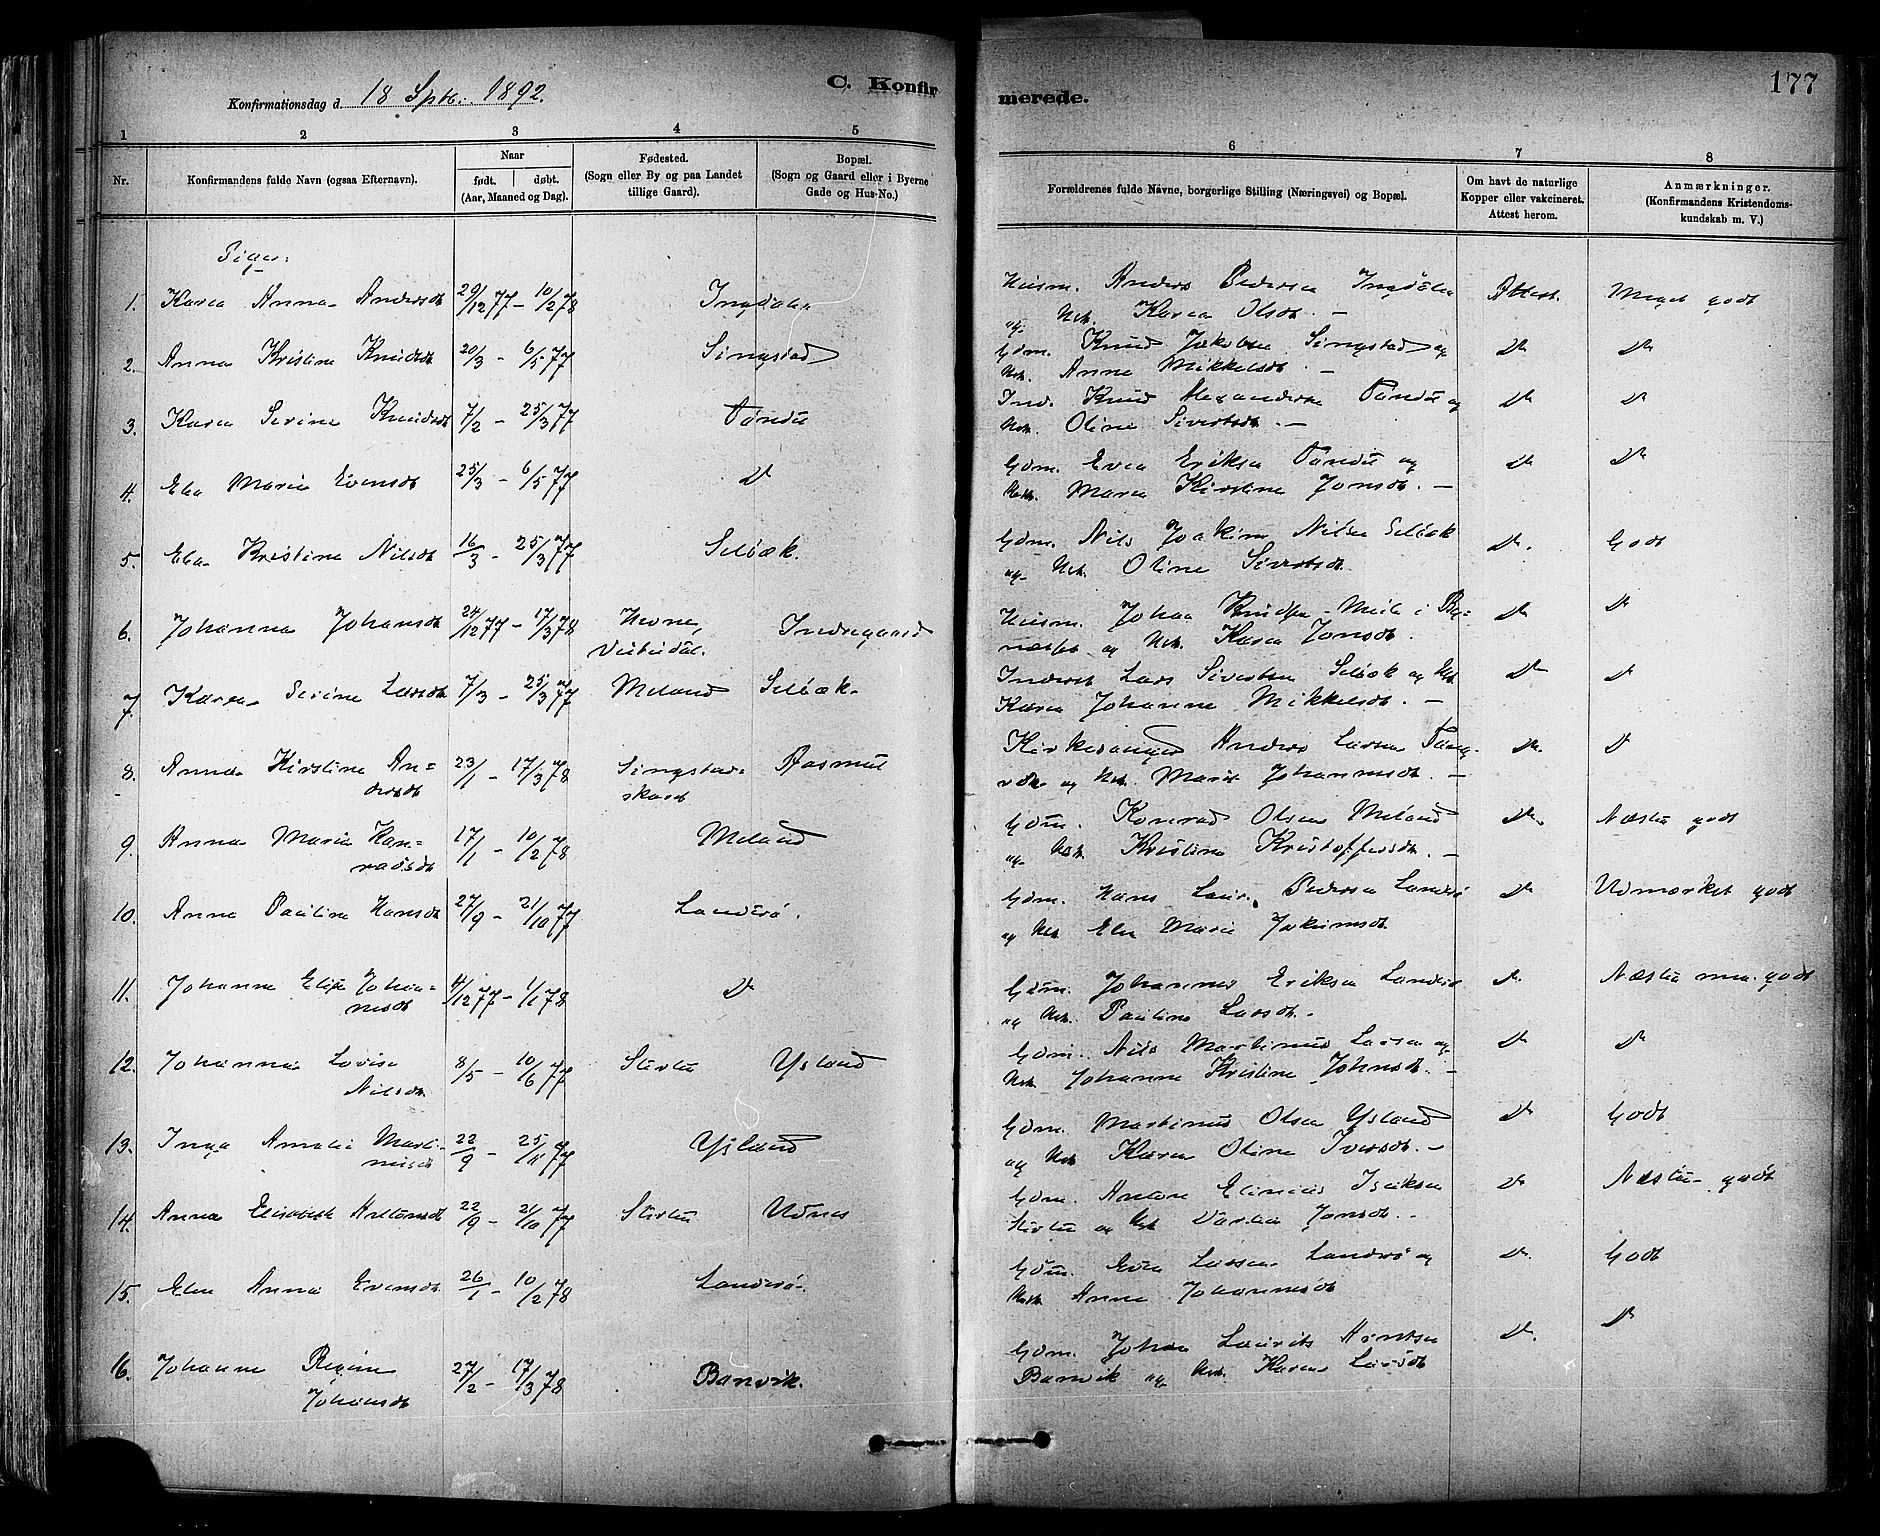 Konfirmationsdag d. 18 Sptb. 1892.
C. Konfirmerede.
177
1 2 3 4 5 6 7 8
Nr.
Konfirmandens fulde Navn (ogsaa Efternavn).
Naar
født. døbt.
(Aar, Maaned og Dag).
Fødested.
(Sogn eller By og paa Landet
tillige Gaard).
Bopæl.
(Sogn og Gaard eller i Byerne
Gade og Hus-No.)
Forældrenes fulde Navne, borgerlige Stilling (Næringsvei) og Bopæl.
Om havt de naturlige
Kopper eller vakcineret.
Attest herom.
Anmærkninger.
(Konfirmandens Kristendoms-
kundskab m. V.)
Piger:
1. Karen Anna Andersdt 29/12 77 – 10/2 78 Ingdalen Husm. Anders Pedersen Ingdalen Attest. Meget godt
og Hst. Karen Olsdt. –
2. Anna Kristine Knudsdt 20/3 – 6/5 77 Singstad Gdm. Knud Jakobsen Singstad og Do Do
Hst. Anne Mikkelsdt. –
3. Karen Serine Knudsdt 7/2 – 25/3 77 Tøndu Ind. Knud Alexandersen Tøndu og Do Do
Hst. Oline Sivertsdt. –
4. Elen Marie Evensdt 25/3 – 6/5 77 Do Gdm. Even Eriksen Tøndu og Do Do
Hst. Maren Kirstine Jonsdt. –
5. Elen Kristine Nilsdt 16/3 – 25/3 77 Selbæk. Gdm. Nils Joakim Nilsen Selbæk Do. Godt
og Hst. Oline Sivertsdt.
6. Johanna Johansdt 24/12 77 – 17/3 78 Hevne, Indregaard Husm. Johan Knudsen Do Do
og Hst. Karen Jonsdt.
7. Karen Serine Larsdt 7/3 – 25/3 77 Meland Selbæk. Inderst Lars Sivertsen Selbæk og Hst. Do Do
Karen Johanne Mikkelsdt. –
8. Anna Kirstine An= 23/1 – 17/3 78 Singstad= Aasmul Kirkesanger Anders Larsen Do. Do
dersdt skaret og Hst. Marit Johannesdt. –
9. Anna Marie Kon= 17/1 – 10/2 78 Meland Gdm. Konrad Olsen Meland Do. Næsten godt
radsdt og Hst. Kristine Kristoffersdt. –
10. Anna Pauline Hansdt 27/9 – 21/10 77 Landrø. Gdm. Hans Laur. Pedersen Landrø Do Udmærket godt
og Hst Elen Marie Jokumsdt.
11. Johanna Elise Johan= 4/12 77 – 1/1 78 Do Gdm. Johannes Eriksen Landrø Do. Næsten meg. godt
nesdt og Hst. Pauline Larsdt.
12. Johanna Lovise 8/5 – 10/6 77 Sterten Ysland Gdm. Nils Martinus Larsen og Do Do
Nilsdt. Hst. Johanne Kristine Johnsdt. –
13. Inga Amalie Marti= 22/9 – 25/11 77 Ysland Gdm. Martinus Olsen Ysland Do Godt
nusdt og Hst Karen Oline Iversdt. –
14. Anna Elisabeth Antonsdt 22/9 – 21/10 77 Sterten Udnes Gdm. Anton Elinius Isaksen Do Næsten godt
Sterten og Hst. Dorthea Jonsdt.
15. Elen Anna Evensdt 26/1 – 10/2 78 Landrø. Gdm. Even Larsen Landrø og Do. Godt
Hst. Anne Johannesdt
16. Johanne Regine 27/2 – 17/3 78 Banvik. Gdm. Johan Laurits Arntsen Do. Do
Johansdt Banvik og Hst. Karen Larsdt